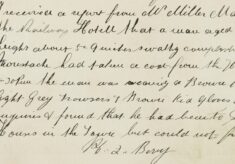 received a report from Mr Miller Ma
the Railway Hotell that a man aged
height about 5 6 swathy complexion
Moustache had taken a coat from the H
the man was wearing a Brown
Light Grey trousers & Brown Kid Gloves
inquires & found that he had been to
Tours in the Town but could not
Berry